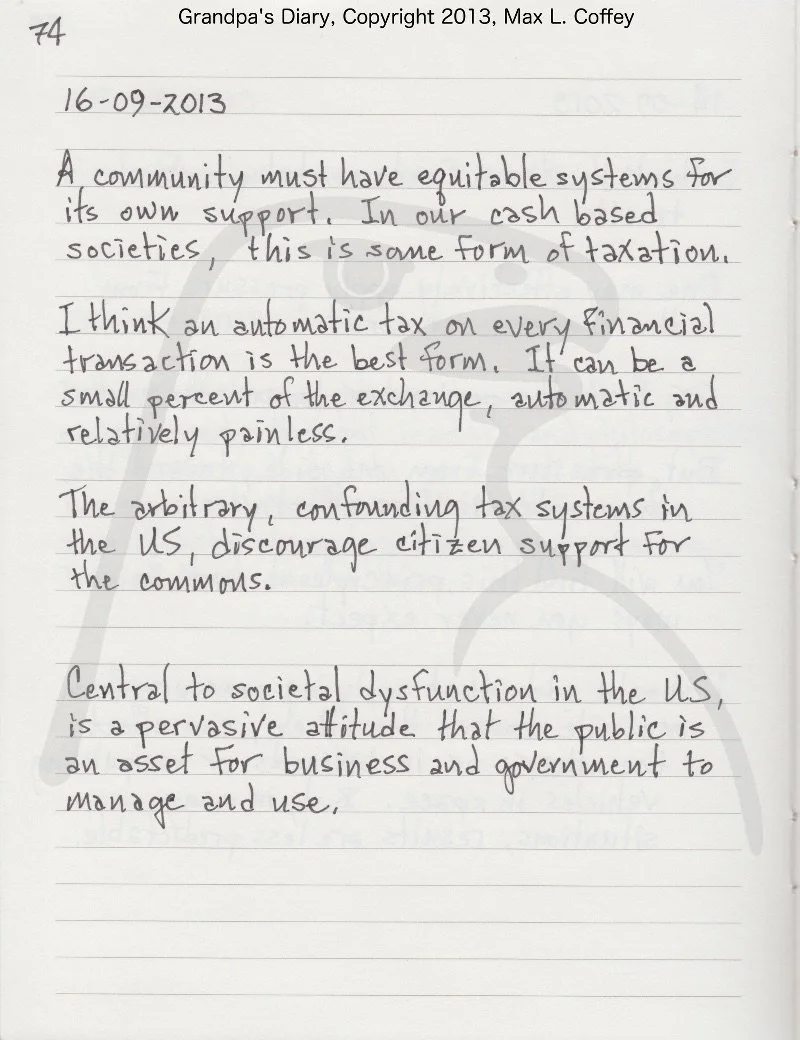 Grandpa's Diary, Copyright 2013, Max L. Coffey
74
16-09-2013
A community must have equitable systems for
its own support. In our cash based
societies, this is some form of taxation.
I think an automatic tax on every financial
transaction is the best form. It can be a
small percent of the exchange, automatic and
relatively painless.
The arbitrary, confounding tax systems in
the US, discourage citizen support for
the commons.
Central to societal dysfunction in the US,
is a pervasive attitude that the public is
an asset for business and government to
manage and use.